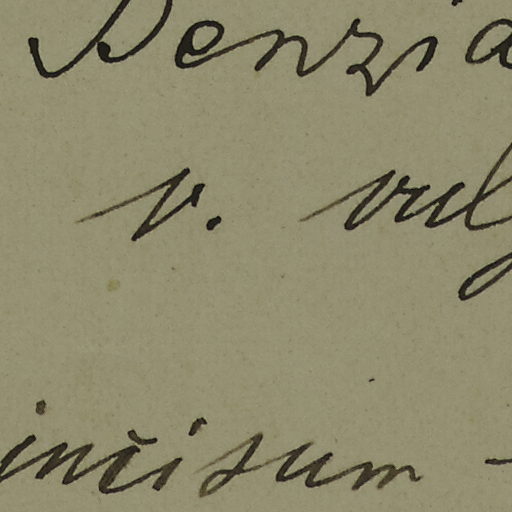 Denzia
v. vulg
incisum -